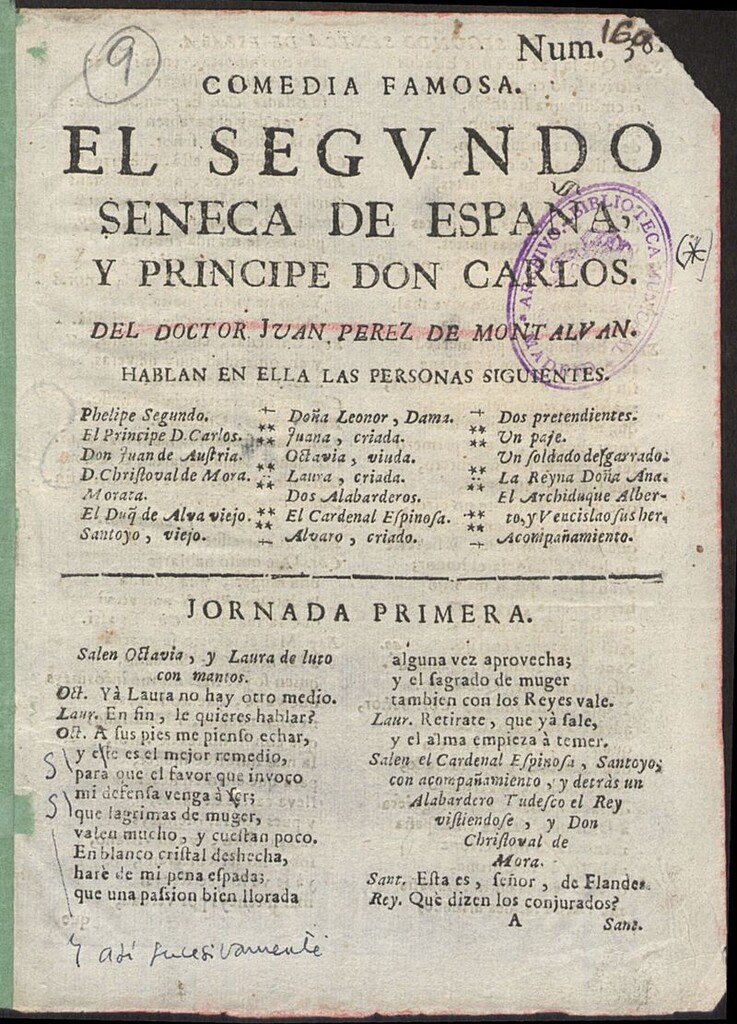 9
160
Num. 38.
COMEDIA FAMOSA.
EL SEGVNDO
SENECA DE ESPAÑA,
Y PRINCIPE DON CARLOS.
(*)
DEL DOCTOR JVAN PEREZ DE MONTALVAN.
ARCHIVO. BIBLIOTECA
MADRID
HABLAN EN ELLA LAS PERSONAS SIGUIENTES.
Phelipe Segundo. Doña Leonor, Dama. Dos pretendientes.
El Principe D. Carlos. ** Juana, criada. ** Un paje.
Don Juan de Austria. Octavia, viuda. Un soldado desgarrado.
D. Christoval de Mora. ** Laura, criada. ** La Reyna Doña Ana.
Morata. Dos Alabarderos. El Archiduque Alber-
El Duq̃ de Alva viejo. ** El Cardenal Espinosa. ** to, y Vencislao sus her.
Santoyo, viejo. Alvaro, criado. Acompañamiento.
JORNADA PRIMERA.
Salen Octavia, y Laura de luto
con mantos.
Oct. Yà Laura no hay otro medio.
Laur. En fin, le quieres hablar?
Oct. A sus pies me pienso echar,
y este es el mejor remedio,
para que el favor que invoco
mi defensa venga à ser;
que lagrimas de muger,
valen mucho, y cuestan poco.
En blanco cristal deshecha,
harè de mi pena espada;
que una passion bien llorada
alguna vez aprovecha;
y el sagrado de muger
tambien con los Reyes vale.
Laur. Retirate, que yà sale,
y el alma empieza à temer.
Salen el Cardenal Espinosa, Santoyo,
con acompañamiento, y detràs un
Alabardero Tudesco el Rey
vistiendose, y Don
Christoval de
Mora.
Sant. Esta es, señor, de Flandes.
Rey. Que dizen los conjurados?
A Sant.
S
S
y así sucesivamente